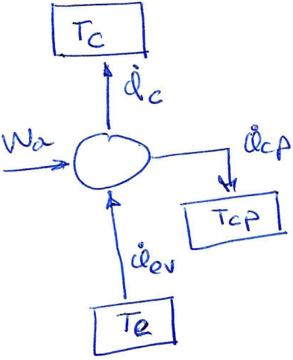 Tc
Q̇c
Wa
Q̇cp
Tcp
Q̇ev
Te